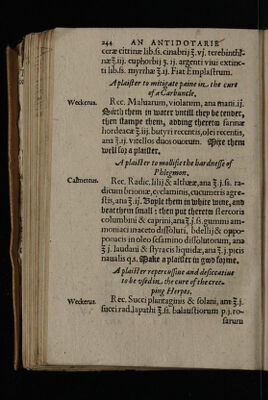 244 AN ANTIDOTARIE
ceræ citrinæ lib.ss. cinabrij ʒ.vj. terebinthi-
næ ℥.iij. euphorbij ʒ.ij. argenti viui extinc-
ti lib.ss. myrrhæ ℥.ij. Fiat Emplastrum.
A plaister to mitigate paine in the cure
of a Carbuncle.
Weckerus. Rec. Maluarum, violarum, ana manij.ij.
Seeth them in water vntill they be tender,
then stampe them, adding thereto farinæ
hordeacæ ℥.iij. butyri recentis, olei recentis,
ana ℥.ij. vitellos duos ouorum. Mixe them
well for a plaister.
A plaister to mollifie the hardnesse of
Phlegmon.
Calmeteus. Rec. Radic. lilij & altheæ, ana ℥.j.ss. ra-
dicum brioniæ, cyclaminis, cucumeris agre-
stis, ana ℥.ij. Boyle them in white wine, and
beat them small: then put thereto stercoris
columbini & caprini, ana ℥.j.ss. gummi am-
moniaci in aceto dissoluti, bdellij & oppo-
ponacis in oleo sesamino dissolutorum, ana
℥.j. laudani & styracis liquidæ, ana ℥.j. picis
naualis q.s. Make a plaister in good forme.
A plaister repercussiue and desiccatiue
to be vsed in the cure of the cree-
ping Herpes.
Weckerus. Rec. Succi plantaginis & solani, ana ℥.j.
succi rad. lapathi ℥.ss. balaustiorum p.j. ro-
sarum